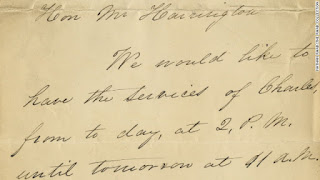 Hon Mr Harrington
We would like to
have the services of Charles,
from to day, at 2, P. M.
until tomorrow at 11 A.M.